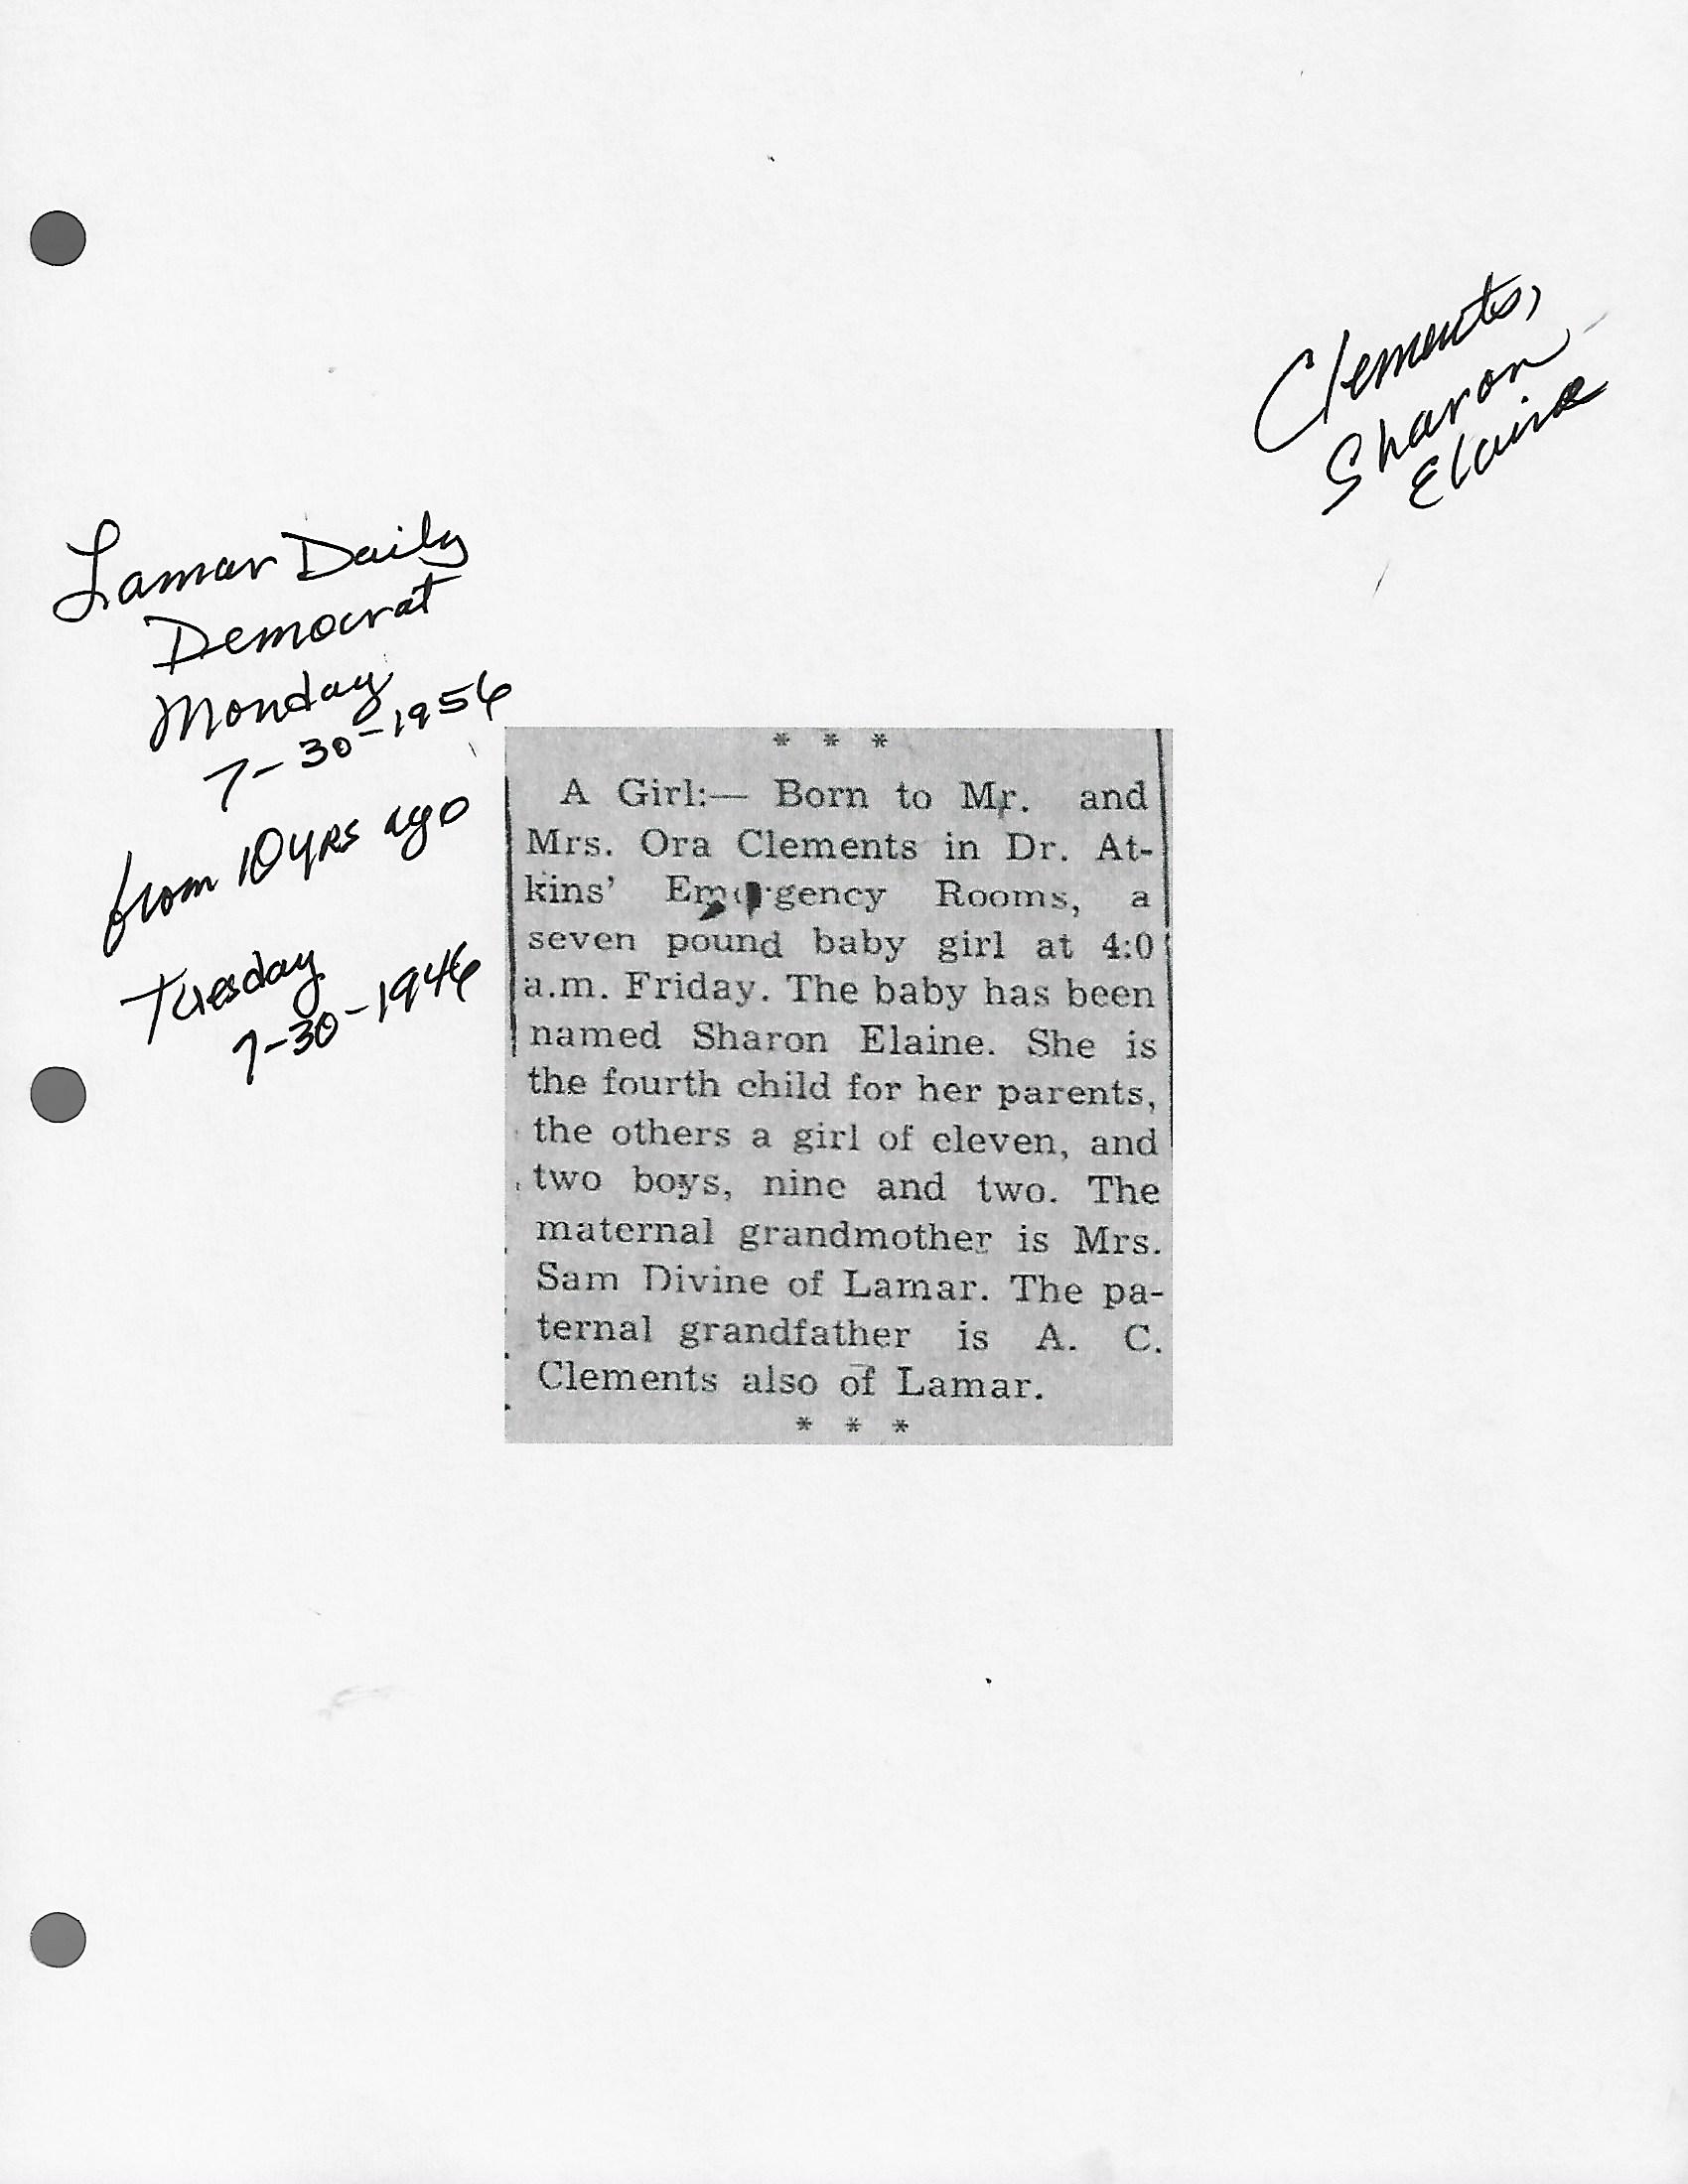 Clements,
Sharon
Elaine
Lamar Daily
Democrat
Monday
7-30-1956
from 10 yrs ago
Tuesday
7-30-1946
* * *
A Girl:— Born to Mr. and
Mrs. Ora Clements in Dr. At-
kins' Emergency Rooms, a
seven pound baby girl at 4:0
a.m. Friday. The baby has been
named Sharon Elaine. She is
the fourth child for her parents,
the others a girl of eleven, and
two boys, nine and two. The
maternal grandmother is Mrs.
Sam Divine of Lamar. The pa-
ternal grandfather is A. C.
Clements also of Lamar.
* * *